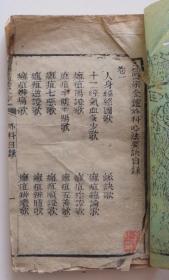 醫宗金鑑外科心法要訣目錄
卷一
人身經絡圖歌
脉訣歌
十二經氣血多少歌
癰疽總論歌
癰疽陽證歌
癰疽陰證歌
癰疽半陰半陽歌
癰疽五善歌
癰疽七惡歌
癰疽順證歌
癰疽逆證歌
癰疽辨腫歌
癰疽辨痛歌
癰疽辨膿歌
外科目錄